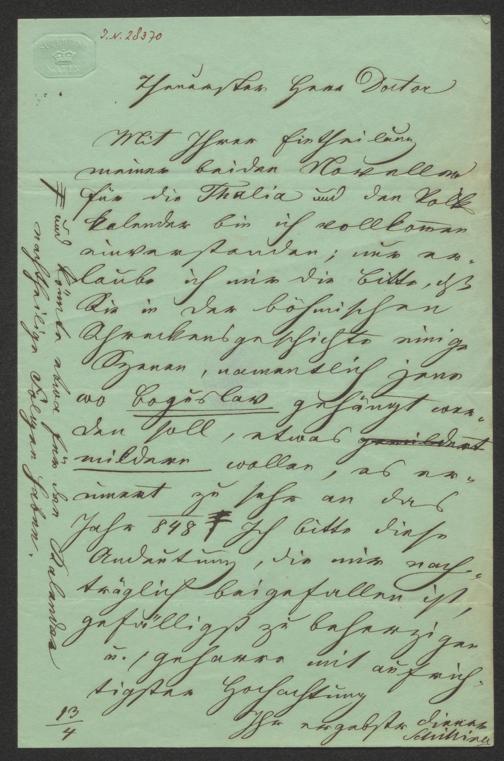 I.N. 28370
Theuerster Herr Doctor
Mit Ihrer Eintheilung
meiner beiden Novellen
für die Thalia und den Volks
kalender bin ich vollkommen
einverstanden; nur er-
laube ich mir die Bitte, daß
Sie in der böhmischen
Schreckensgeschichte einige
Szenen, namentlich jene
wo Boguslav gehängt wer-
den soll, etwas gemildert
mildern wollen, es er-
innert zu sehr an das
Jahr 848 Ich bitte diese
Andeutung, die mir nach-
träglich beigefallen ist,
gefälligst zu beherzigen
u. geharre mit aufrich-
tigster Hochachtung
Ihr ergebster Diener
13/4
und könnte etwa für den Kalender
nachtheilige Folgen haben.